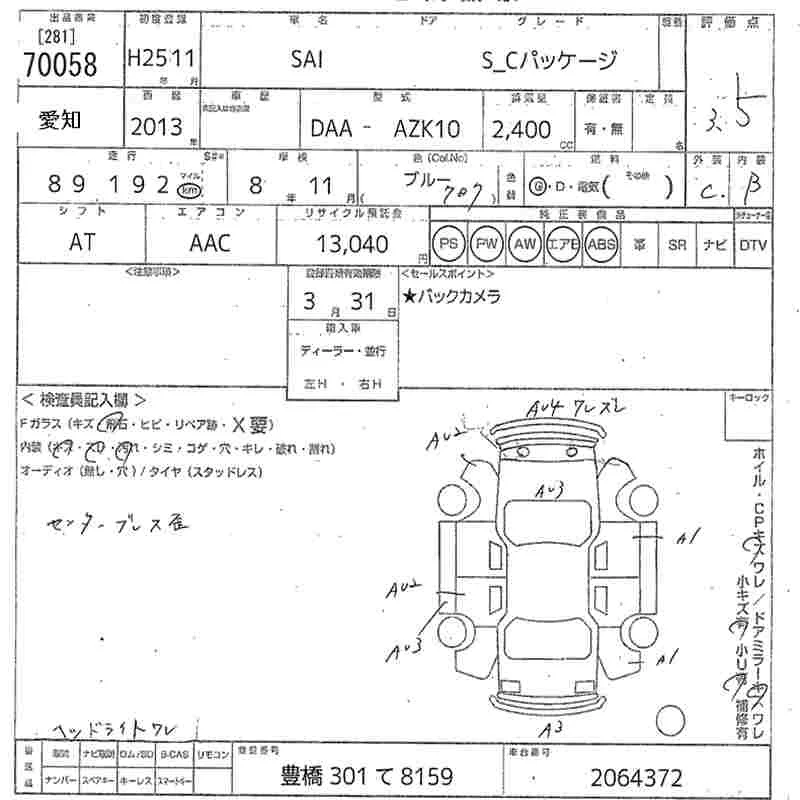 出品番号 初度登録 車名 ドア グレード 評価点
[281]
70058 H25 11 SAI S_Cパッケージ
年 月
3.5
愛知 西暦 車歴 型式 排気量 保証書 定員
2013 DAA - AZK10 2,400 有・無
年 CC 名
走行 車検 色 (Col.No) 色替 燃料 外装 内装
89 192 マイル km 8年 11月 ブルー 707 Ⓖ・D・電気( その他 ) C. B
シフト エアコン リサイクル預託金 純正装備品
AT AAC 13,040円 PS PW AW エアB ABS 革 SR ナビ DTV
<注意事項> 登録書類有効期限 <セールスポイント>
3月 31日 ★バックカメラ
輸入車
ディーラー・並行
左H ・ 右H
<検査員記入欄> キーロック
Fガラス (キズ・飛石・ヒビ・リペア跡・X要)
内装 (キズ・スレ・汚れ・シミ・コゲ・穴・キレ・破れ・割れ)
オーディオ (無し・穴) / タイヤ (スタッドレス)
センターブレス歪
AU4 ワレズレ
AU2
AU3
A1
AU2
AU3
A1
A3
ホイル・CPキズワレ/ドアミラーキズワレ
小キズ有 小U有 補修有
ヘッドライトワレ
取説 ナビ取説 ロム/SD B-CAS リモコン 登録番号 車台番号
ナンバー スペアキー キーレス スマートキー
豊橋 301 て 8159 2064372